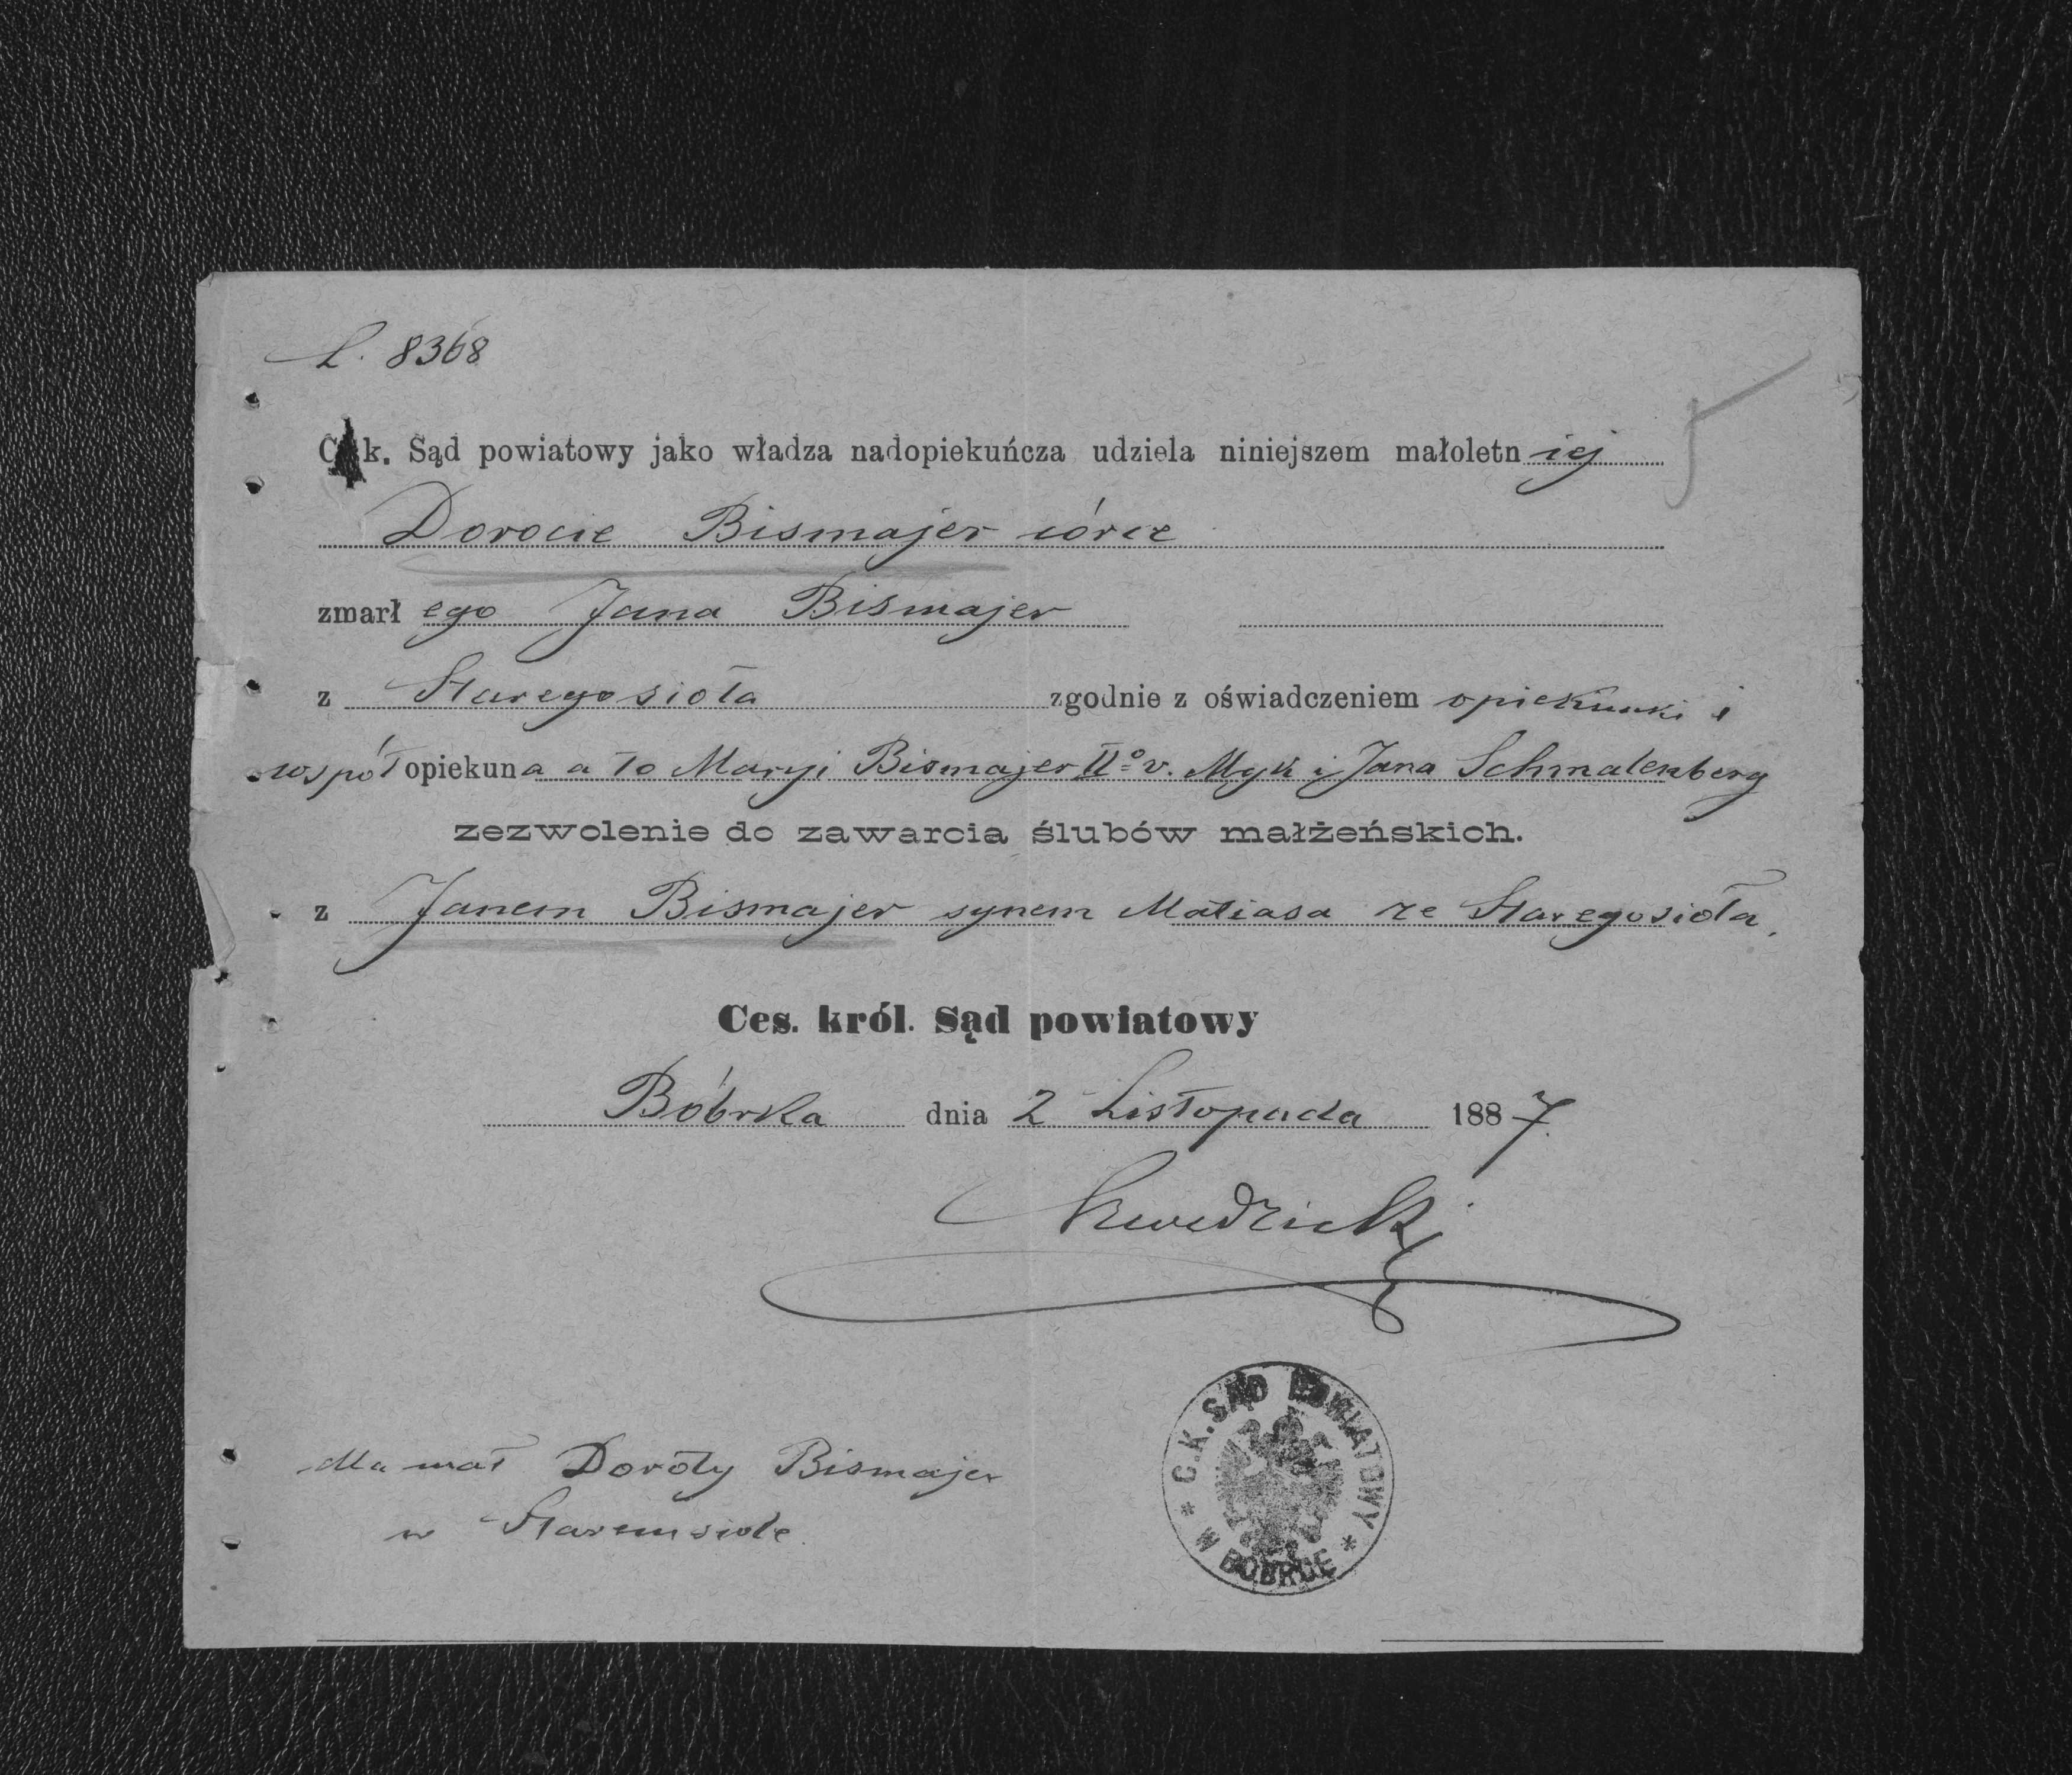 L. 8368
C. k. Sąd powiatowy jako władza nadopiekuńcza udziela niniejszem małoletniej
Dorocie Bismajer córce
zmarłego Jana Bismajer
z Staregosioła zgodnie z oświadczeniem opiekunki i
współopiekuna a to Maryi Bismajer IIº v. Myk i Jana Schmalenberg
zezwolenie do zawarcia ślubów małżeńskich.
z Janem Bismajer synem Matiasa ze Staregosioła.
Ces. król. Sąd powiatowy
Bóbrka dnia 2 Listopada 1887.
C.K. SĄD POWIATOWY
W BÓBRCE
dla mał Doroty Bismajer
w Staremsiole